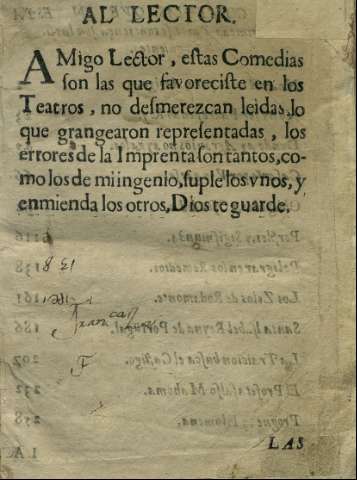 AL LECTOR.
AMigo Lector, estas Comedias
son las que favoreciste en los
Teatros, no desmerezcan leidas, lo
que grangearon representadas, los
errores de la Imprenta son tantos, co-
mo los de mi ingenio, suple los vnos, y
enmienda los otros, Dios te guarde.
138
F
LAS